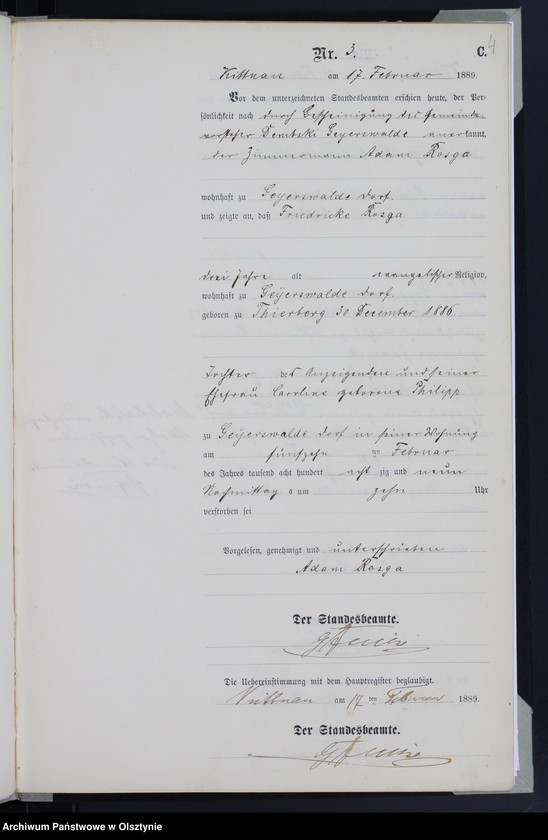 Nr. 3.
C.
4
Kittnau am 17. Februar 1889.
Vor dem unterzeichneten Standesbeamten erschien heute, der Per-
sönlichkeit nach durch Bescheinigung des Gemeinde-
vorsteher Dembski Geyerswalde anerkannt,
der Zimmermann Adam Rosga
wohnhaft zu Geyerswalde Dorf.
und zeigte an, daß Friedricke Rosga
drei Jahre alt evangelischer Religion,
wohnhaft zu Geyerswalde Dorf.
geboren zu Thierberg 30 December 1886
Tochter des Anzeigenden und seiner
Ehefrau Caroline geborene Philipp
zu Geyerswalde Dorf in seiner Wohnung
am fünfzehn ten Februar
des Jahres tausend acht hundert acht zig und neun
Nachmittag s um zehn Uhr
verstorben sei
Vorgelesen, genehmigt und unterschrieben
Adam Rosga
Der Standesbeamte.
Die Uebereinstimmung mit dem Hauptregister beglaubigt.
Kittnau am 17 ten Februar 1889.
Der Standesbeamte.
Archiwum Państwowe w Olsztynie